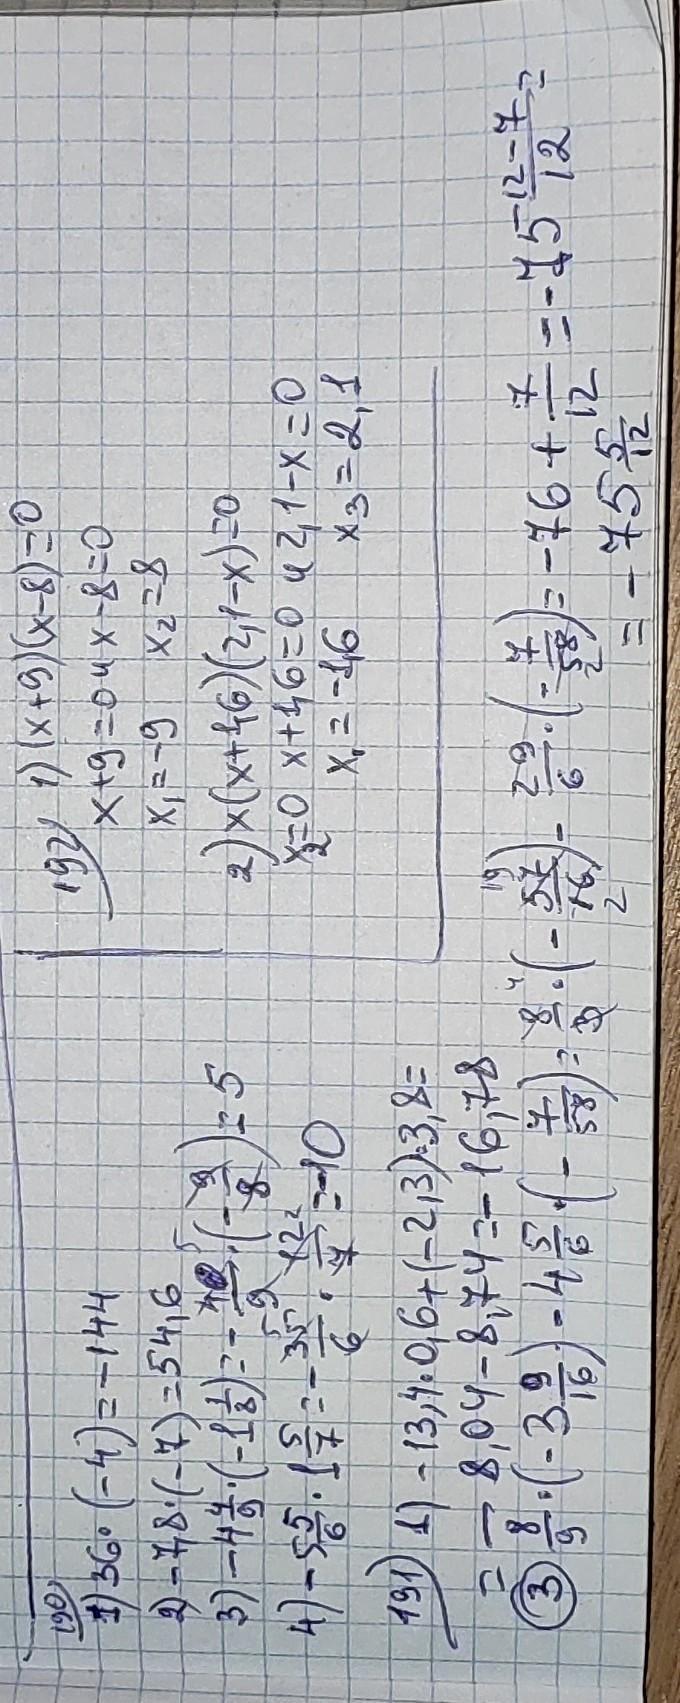 190) 1) 36·(-4)=-144
2) -7,8·(-7)=54,6
3) -4 4/9·(-1 1/8)=-40/9·(-9/8)=5
4) -5 5/6·1 5/7=-35/6·12/7=-10
191) 1) -13,4·0,6+(-2,3)·3,8=
=-8,04-8,74=-16,78
③ 8/9·(-3 9/16)-4 5/6·(-7/58)=8/9·(-57/16)-29/6·(-7/58)=-76+7/12=-75 12-7/12=
=-75 5/12
192) 1) (x+9)(x-8)=0
x+9=0 и x-8=0
x₁=-9 x₂=8
2) x(x+1,6)(2,1-x)=0
x₂=0 x+1,6=0 и 2,1-x=0
x₁=-1,6 x₃=2,1